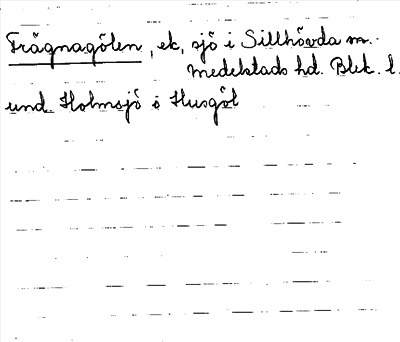 Frägnagölen, ek, sjö i Sillhövda sn.
Medelstads hd. Blek. l.
und. Holmsjö o Husgöl